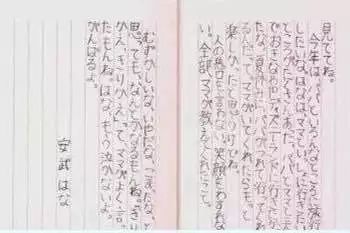 見ててね。
今年は、パパといろんなところに旅行
したいな。はなは、ママといっしょに行きたい
ところがたくさんあった。パパとママと三人
でおきなわやディズニーランドに行きたかっ
たな。夏休みに、パパがつれて行ってくれ
るんだって。ママがいてくれたらもっと
楽しかったと思うけどね。
人の悪口を言わない。笑顔をわすれな
い。全部、ママが教えてくれたこと。
むずかしいな、いやだな、こまったな、と
思っても、なんとかなるもんね。きり
かえ、きりかえって、ママがよく言っ
たもんね。はな、もう泣かないよ。
がんばるよ。
安武はな